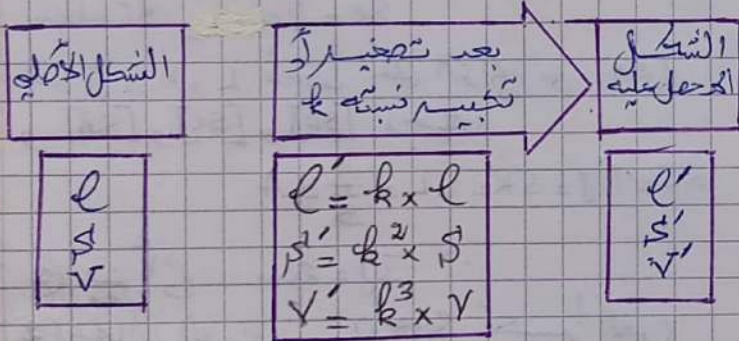 الشكل الأصلي
بعد تصغير أو
تكبير نسبته k
الشكل
المحصل عليه
l
S
V
l' = k × l
S' = k² × S
V' = k³ × V
l'
S'
V'